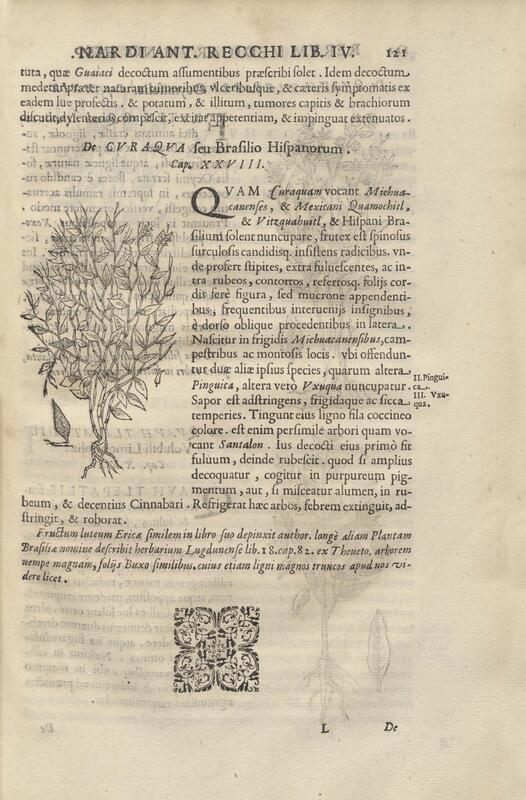 NARDI ANT. RECCHI LIB. IV. 121
tuta, quæ Guaiaci decoctum assumentibus præscribi solet. Idem decoctum
medetur præter naturam tumoribus vlceribusque, & cæteris symptomatis ex
eadem lue profectis. & potatum, & illitum, tumores capitis & brachiorum
discutit, dysenterias compescit, excitat appetentiam, & impinguat extenuatos.
De CVRAQVA seu Brasilio Hispanorum.
Cap. XXVIII.
QVAM Curaquam vocant Michua-
canenses, & Mexicani Quamochitl,
& Vitzquahuitl, & Hispani Bra-
silium solent nuncupare, frutex est spinosus
surculosis candidisq. insistens radicibus. vn-
de profert stipites, extra fuluescentes, ac in-
tra rubeos, contortos, refertosq. folijs cor-
dis ferè figura, sed mucrone appendenti-
bus, frequentibus interuenijs insignibus,
è dorso oblique procedentibus in latera.
Nascitur in frigidis Michuacanensibus, cam-
pestribus ac montosis locis. vbi offendun-
tur duæ aliæ ipsius species, quarum altera
Pinguica, altera vero Vxuqua nuncupatur.
II. Pingui-
ca.
III. Vxu-
qua.
Sapor est adstringens, frigidaque ac sicca
temperies. Tingunt eius ligno fila coccineo
colore. est enim persimile arbori quam vo-
cant Santalon. Ius decocti eius primò fit
fuluum, deinde rubescit. quod si amplius
decoquatur, cogitur in purpureum pig-
mentum, aut, si misceatur alumen, in ru-
beum, & decentius Cinnabari. Refrigerat hæc arbos, febrem extinguit, ad-
stringit, & roborat.
Fructum luteum Ericæ similem in libro suo depinxit author. longè aliam Plantam
Brasiliæ nomine describit herbarium Lugdunense lib. 18. cap. 82. ex Theueto. arborem
nempe magnam, folijs Buxo similibus. cuius etiam ligni magnos truncos apud nos vi-
dere licet.
L De